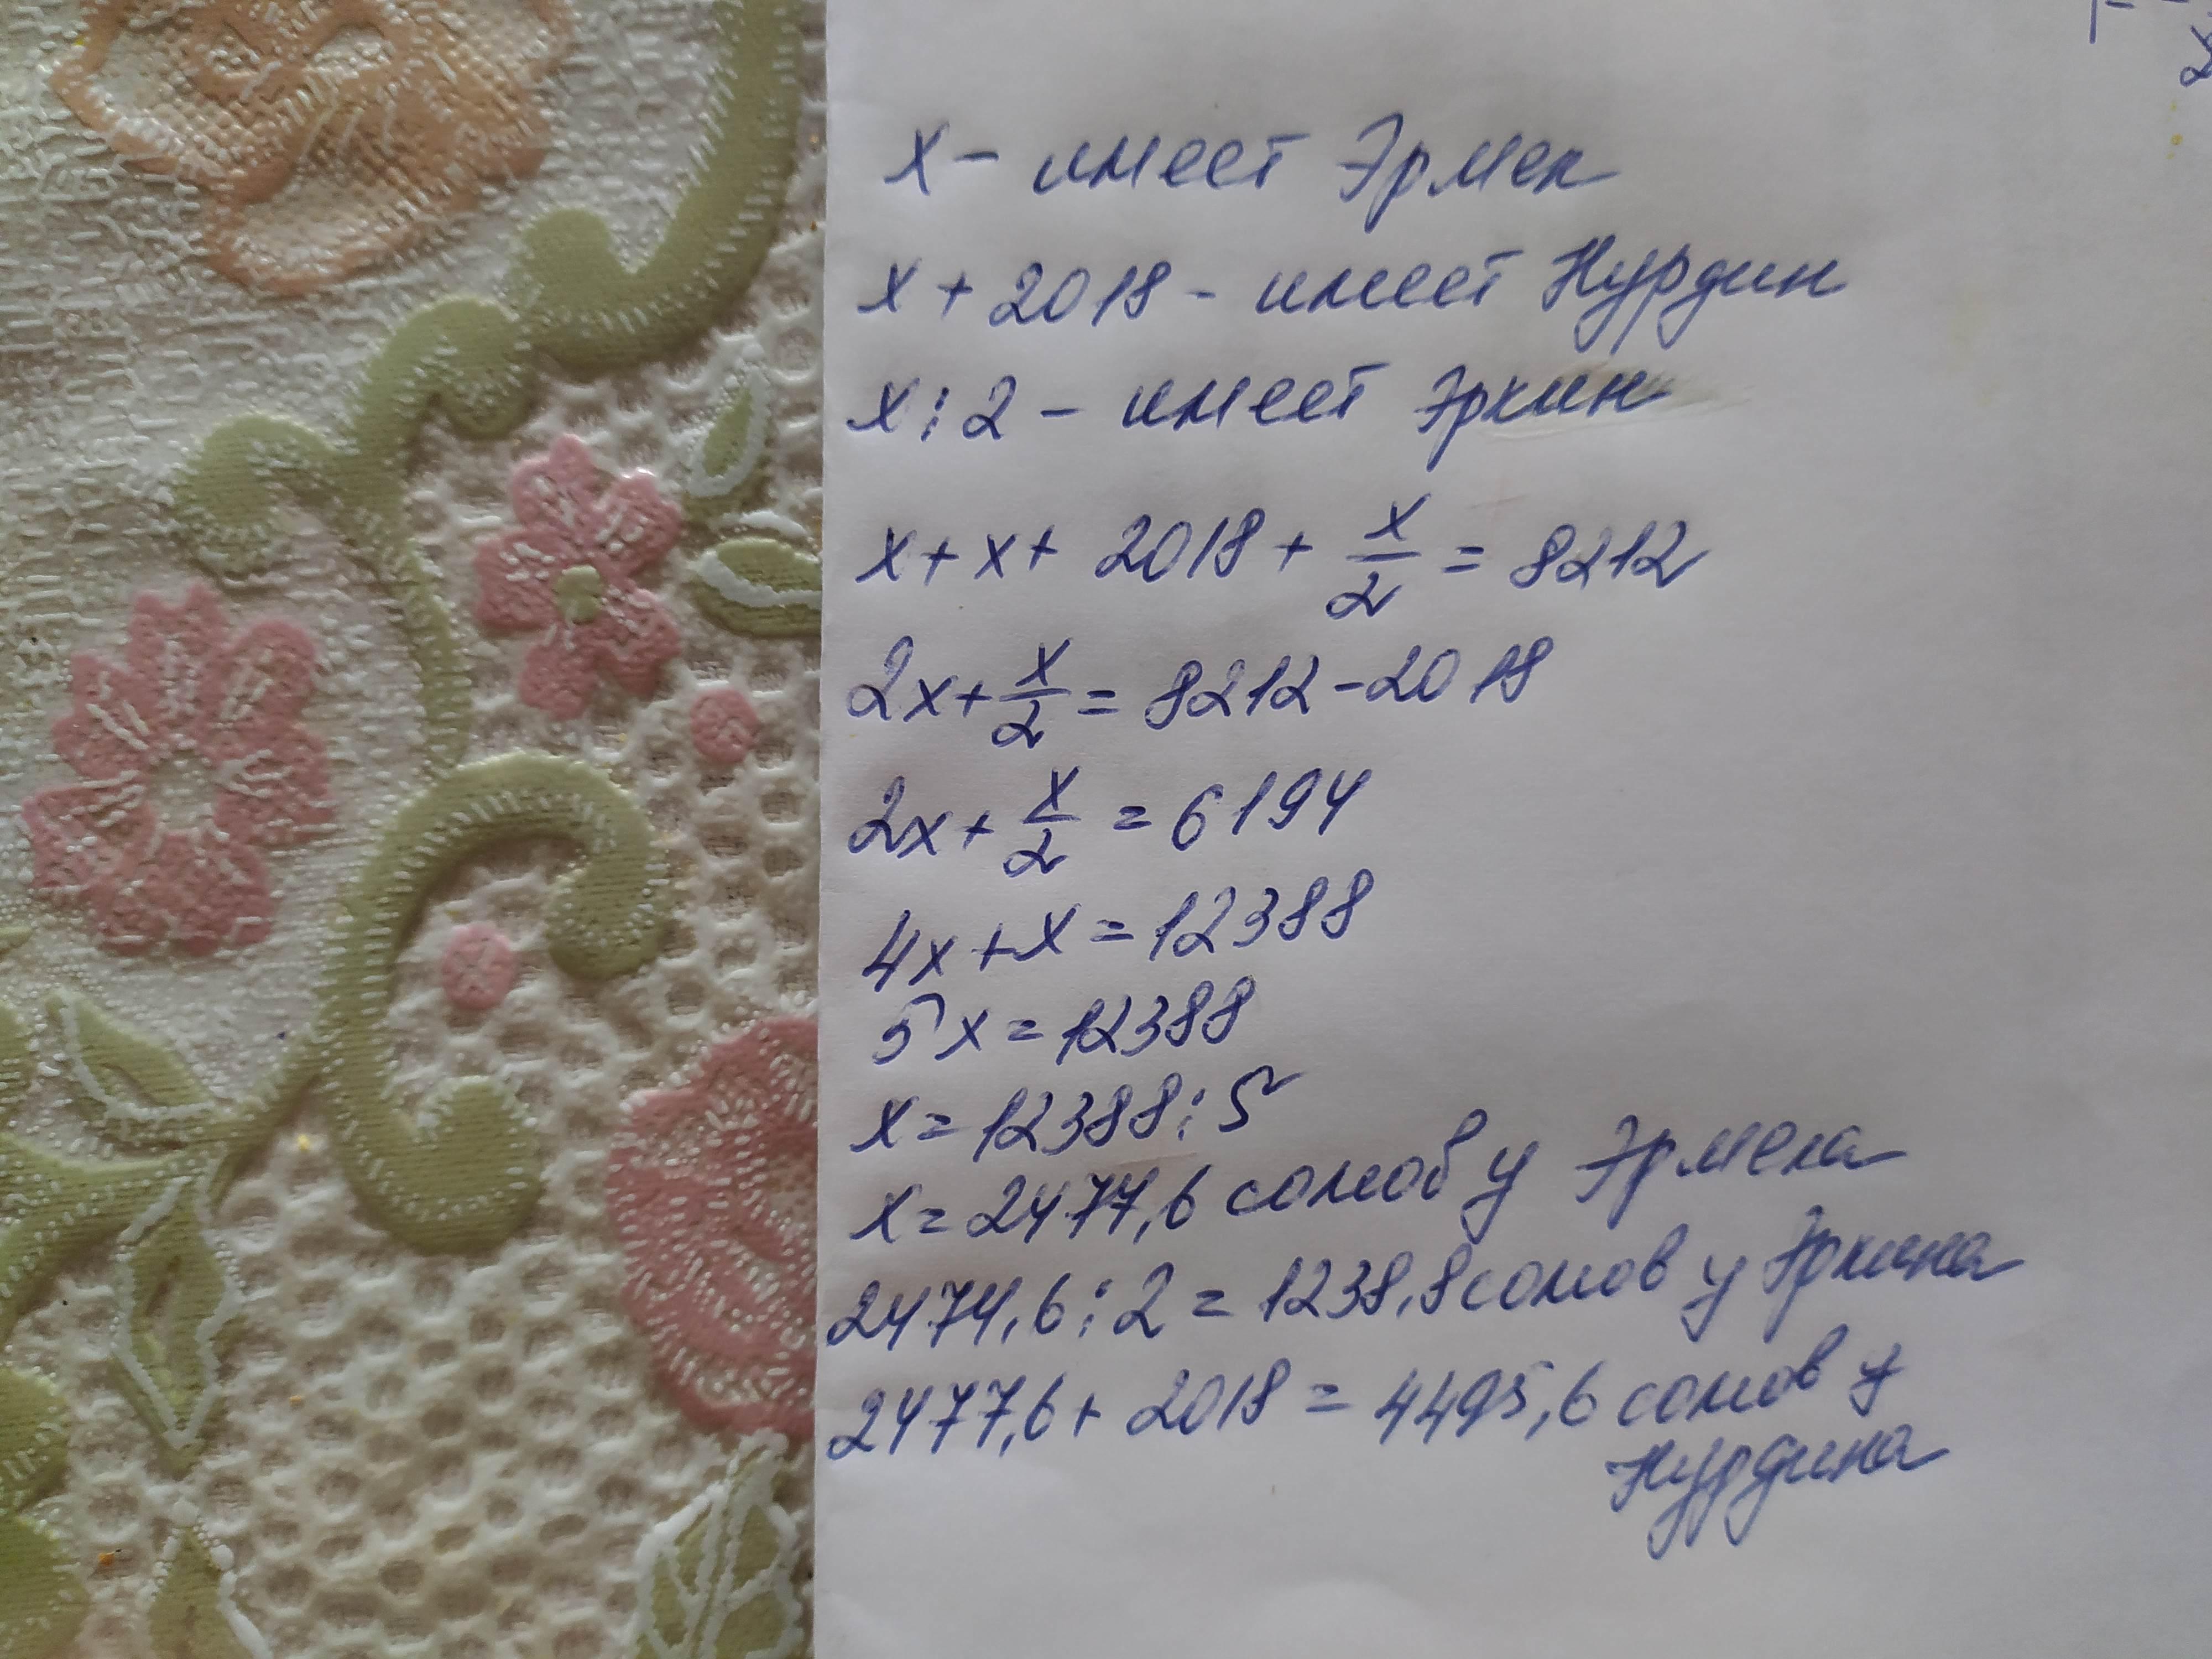 x - имеет Эрмек
x + 2018 - имеет Нурдин
x : 2 - имеет Эркин
x + x + 2018 + x/2 = 8212
2x + x/2 = 8212 - 2018
2x + x/2 = 6194
4x + x = 12388
5x = 12388
x = 12388 : 5
x = 2477,6 сомов у Эрмека
2477,6 : 2 = 1238,8 сомов у Эркина
2477,6 + 2018 = 4495,6 сомов у
Нурдина